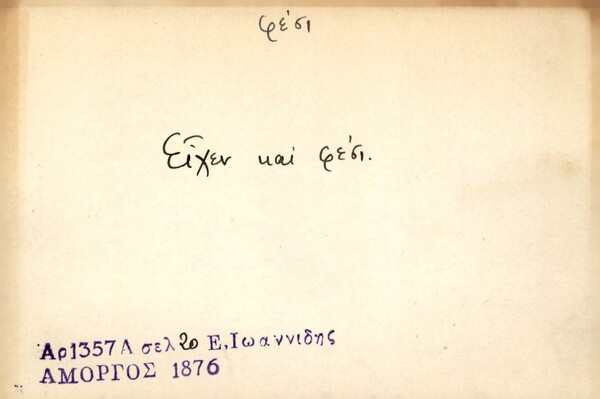 φέσι
Εἶχεν καί φέσι.
Ἀρ1357Α σελ 20 Ε. Ιωαννιδης
ΑΜΟΡΓΟΣ 1876